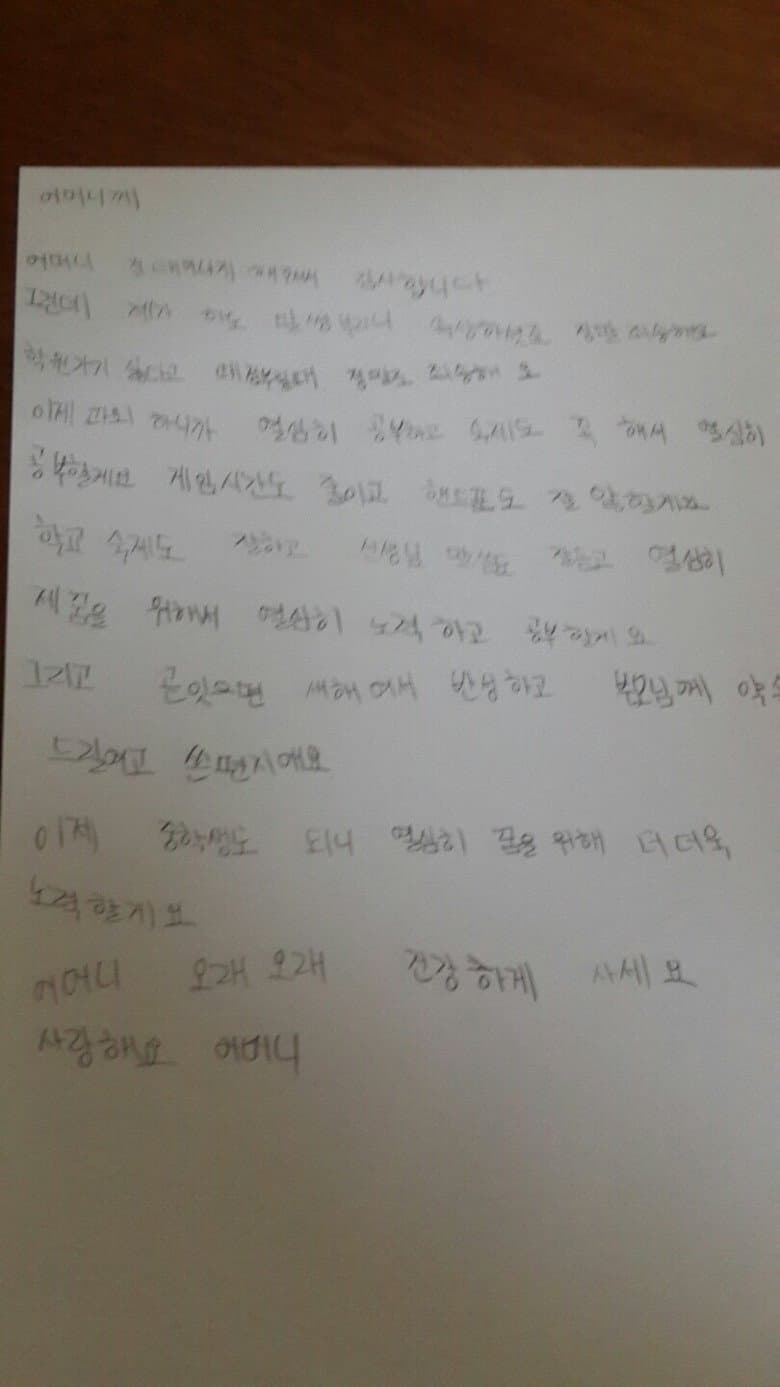 어머니께
어머니 감사합니다
그런데 제가 정말 죄송해요
학원가기 싫다고 정말로 죄송해요
이제 과외 하니까 열심히 공부하고 숙제도 꼭 해서 열심히
공부할게요 게임시간도 줄이고 핸드폰도 잘 안할게요
학교 숙제도 잘하고 선생님 말씀도 잘듣고 열심히
제 꿈을 위해서 열심히 노력하고 공부할게요
그리고 곧잇으면 새해여서 반성하고 부모님께
드릴려고 쓴편지에요
이제 중학생도 되니 열심히 꿈을 위해 더 더욱
노력할게요
어머니 오래오래 건강하게 사세요
사랑해요 어머니